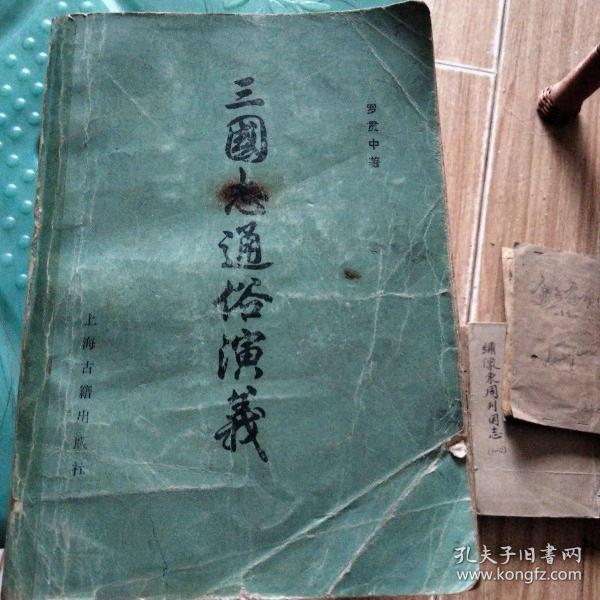 三國志通俗演義
罗貫中著
上海古籍出版社
繡像東周列国志
孔夫子旧书网
www.kongfz.com